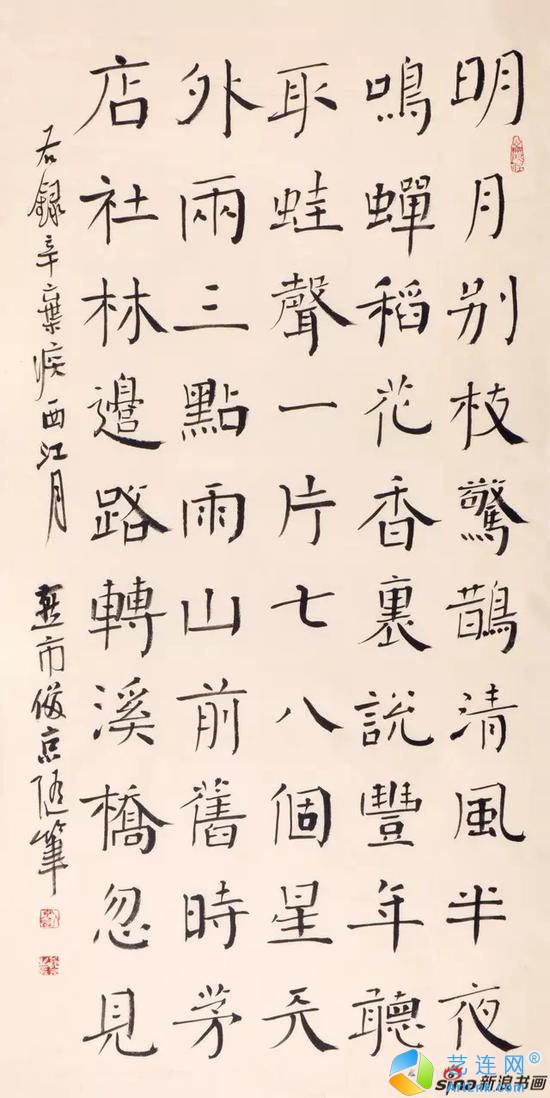 明月别枝驚鵲清風半夜
鳴蟬稻花香裏說豐年聽
取蛙聲一片七八個星天
外兩三點雨山前舊時茅
店社林邊路轉溪橋忽見
右錄辛棄疾西江月 燕市京随筆
艺连网
sina新浪书画